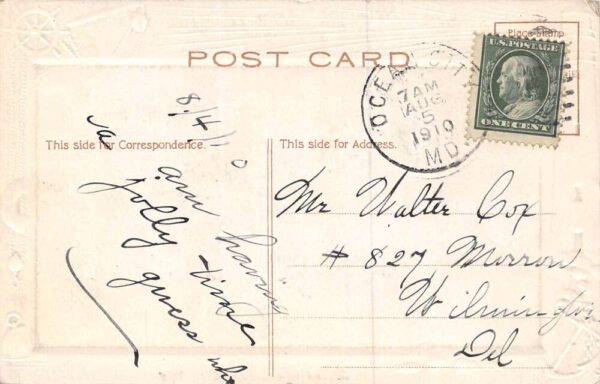 POST CARD
Place Stamp
U.S. POSTAGE
ONE CENT
OCEAN CITY
7 AM
AUG
5
1910
MD
This side for Correspondence.
8/4/10
am having
jolly time
guess who
This side for Address.
Mr Walter Cox
# 827 Morrow
Wilmington
Del